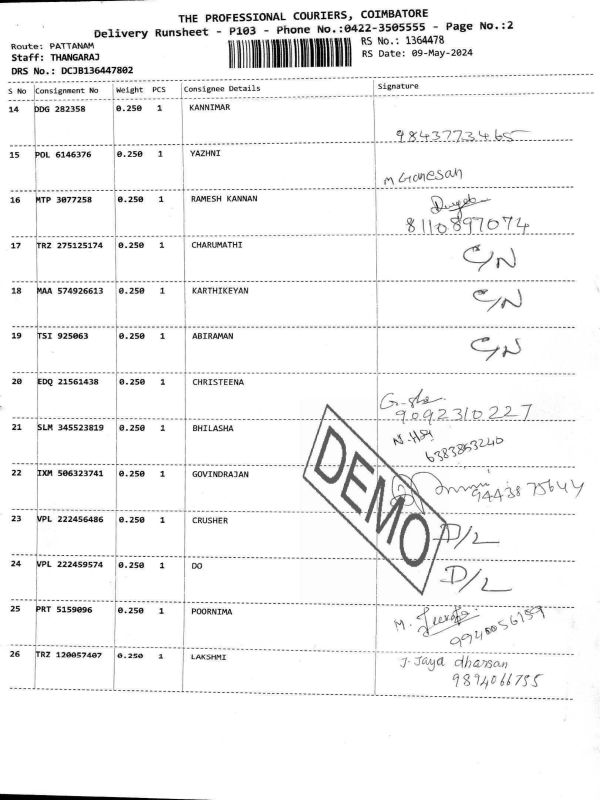 THE PROFESSIONAL COURIERS, COIMBATORE
Delivery Runsheet - P103 - Phone No.:0422-3505555 - Page No.:2
Route: PATTANAM
RS No.: 1364478
Staff: THANGARAJ
RS Date: 09-May-2024
DRS No.: DCJB136447802
S No Consignment No Weight PCS Consignee Details Signature
14 DDG 282358 0.250 1 KANNIMAR
9843773465
15 POL 6146376 0.250 1 YAZHNI
M Ganesan
16 MTP 3077258 0.250 1 RAMESH KANNAN
8110897074
17 TRZ 275125174 0.250 1 CHARUMATHI
C/N
18 MAA 574926613 0.250 1 KARTHIKEYAN
C/N
19 TSI 925063 0.250 1 ABIRAMAN
C/N
20 EDQ 21561438 0.250 1 CHRISTEENA
9092310227
21 SLM 345523819 0.250 1 BHILASHA
6383853240
22 IXM 506323741 0.250 1 GOVINDRAJAN
9443875644
23 VPL 222456486 0.250 1 CRUSHER
D/L
24 VPL 222459574 0.250 1 DO
D/L
25 PRT 5159096 0.250 1 POORNIMA
M.
9940056159
26 TRZ 120057407 0.250 1 LAKSHMI
J. Jaya dharsan
9894066755
DEMO